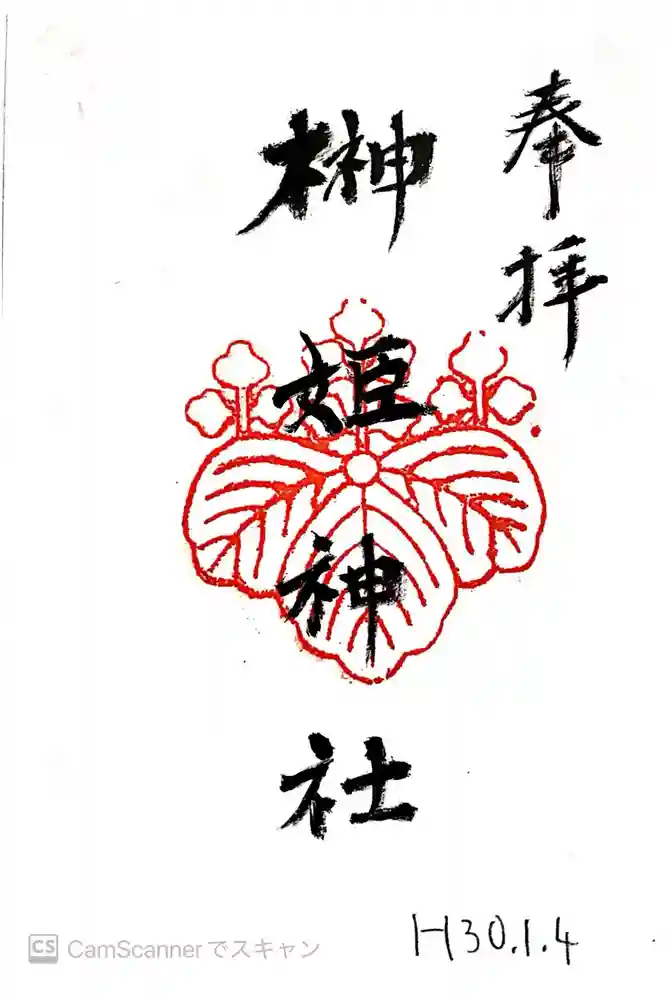 奉拝
榊姫神社
H30.1.4
CS CamScanner でスキャン